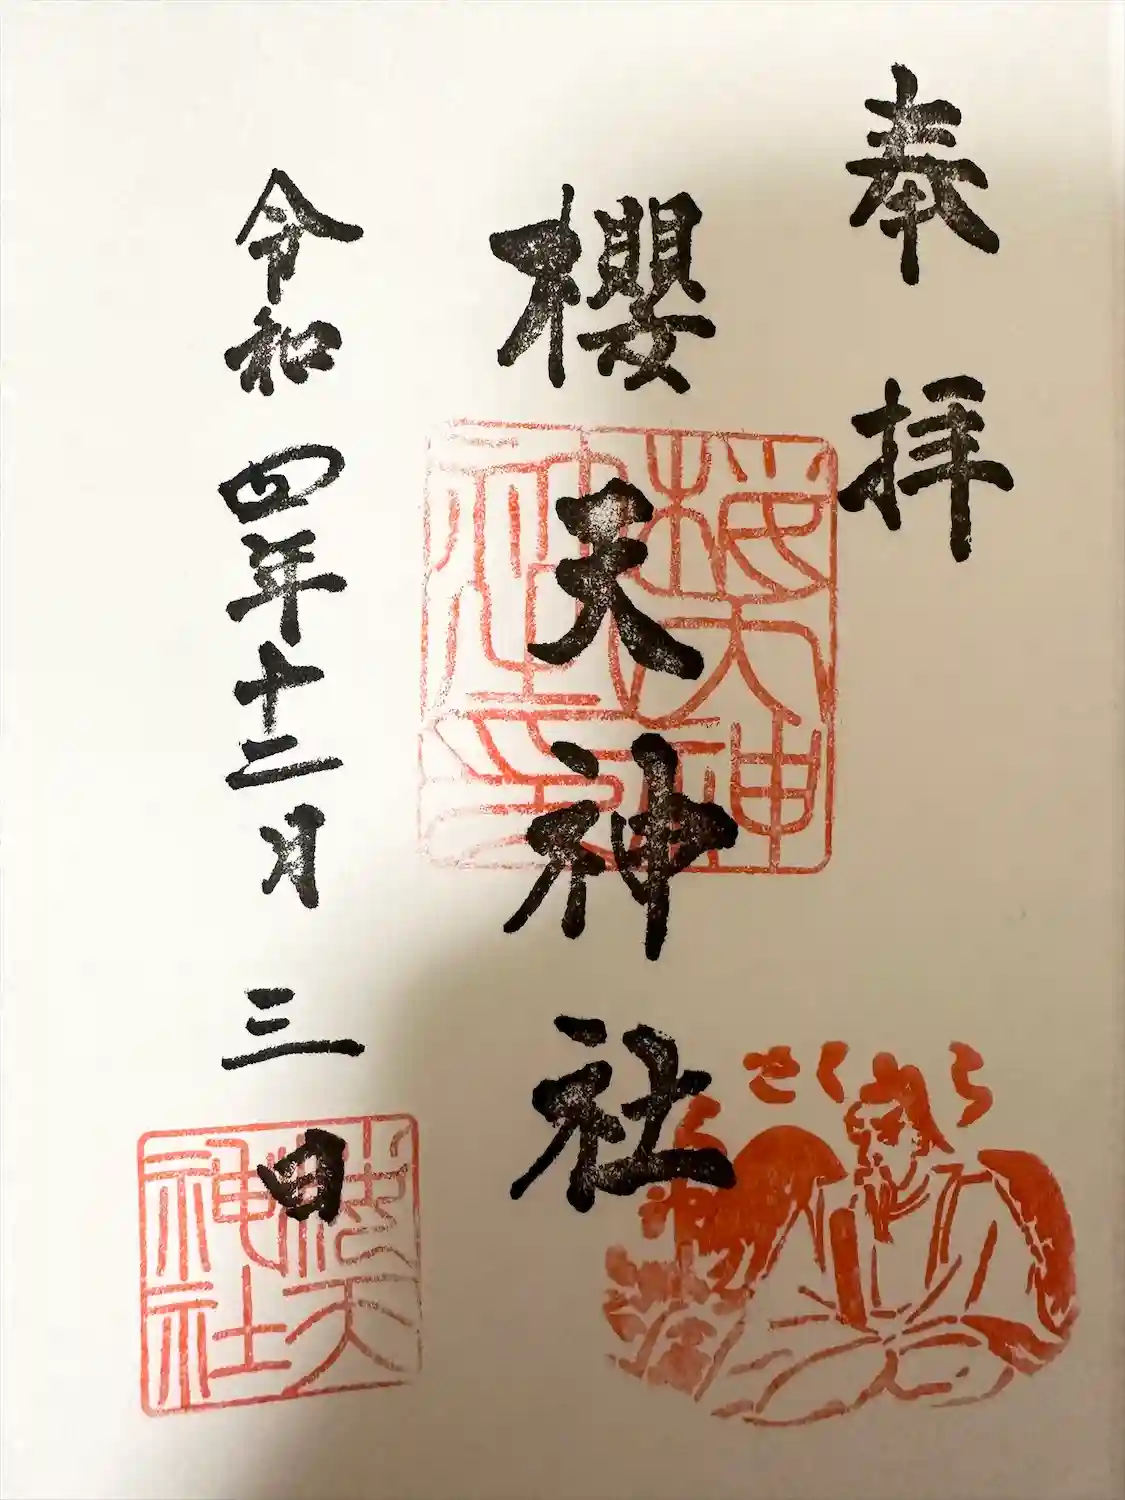 奉拝
櫻天神社
令和四年十二月三日
桜天神社印
桜天神社
さくら